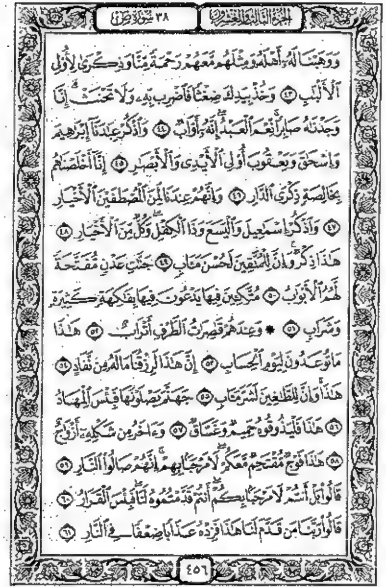 الجزء الثالث والعشرون
٣٨ سورة ص
وَوَهَبْنَا لَهُ أَهْلَهُ وَمِثْلَهُم مَّعَهُمْ رَحْمَةً مِّنَّا وَذِكْرَىٰ لِأُولِي
ٱلْأَلْبَٰبِ ٤٣ وَخُذْ بِيَدِكَ ضِغْثًا فَٱضْرِب بِّهِۦ وَلَا تَحْنَثْ ۗ إِنَّا
وَجَدْنَٰهُ صَابِرًا ۚ نِّعْمَ ٱلْعَبْدُ ۖ إِنَّهُۥٓ أَوَّابٌ ٤٤ وَٱذْكُرْ عِبَٰدَنَآ إِبْرَٰهِيمَ
وَإِسْحَٰقَ وَيَعْقُوبَ أُو۟لِي ٱلْأَيْدِي وَٱلْأَبْصَٰرِ ٤٥ إِنَّآ أَخْلَصْنَٰهُم
بِخَالِصَةٍ ذِكْرَى ٱلدَّارِ ٤٦ وَإِنَّهُمْ عِندَنَا لَمِنَ ٱلْمُصْطَفَيْنَ ٱلْأَخْيَارِ
٤٧ وَٱذْكُرْ إِسْمَٰعِيلَ وَٱلْيَسَعَ وَذَا ٱلْكِفْلِ ۖ وَكُلٌّ مِّنَ ٱلْأَخْيَارِ ٤٨
هَٰذَا ذِكْرٌ ۚ وَإِنَّ لِلْمُتَّقِينَ لَحُسْنَ مَـَٔابٍ ٤٩ جَنَّٰتِ عَدْنٍ مُّفَتَّحَةً
لَّهُمُ ٱلْأَبْوَٰبُ ٥٠ مُتَّكِـِٔينَ فِيهَا يَدْعُونَ فِيهَا بِفَٰكِهَةٍ كَثِيرَةٍ
وَشَرَابٍ ٥١ وَعِندَهُمْ قَٰصِرَٰتُ ٱلطَّرْفِ أَتْرَابٌ ٥٢ هَٰذَا
مَا تُوعَدُونَ لِيَوْمِ ٱلْحِسَابِ ٥٣ إِنَّ هَٰذَا لَرِزْقُنَا مَا لَهُۥ مِن نَّفَادٍ ٥٤
هَٰذَا ۚ وَإِنَّ لِلطَّٰغِينَ لَشَرَّ مَـَٔابٍ ٥٥ جَهَنَّمَ يَصْلَوْنَهَا فَبِئْسَ ٱلْمِهَادُ
٥٦ هَٰذَا فَلْيَذُوقُوهُ حَمِيمٌ وَغَسَّاقٌ ٥٧ وَءَاخَرُ مِن شَكْلِهِۦٓ أَزْوَٰجٌ
٥٨ هَٰذَا فَوْجٌ مُّقْتَحِمٌ مَّعَكُمْ ۖ لَا مَرْحَبًۢا بِهِمْ ۚ إِنَّهُمْ صَالُوا۟ ٱلنَّارِ ٥٩
قَالُوا۟ بَلْ أَنتُمْ لَا مَرْحَبًۢا بِكُمْ ۖ أَنتُمْ قَدَّمْتُمُوهُ لَنَا ۖ فَبِئْسَ ٱلْقَرَارُ ٦٠
قَالُوا۟ رَبَّنَا مَن قَدَّمَ لَنَا هَٰذَا فَزِدْهُ عَذَابًا ضِعْفًا فِي ٱلنَّارِ ٦١
٤٥٦